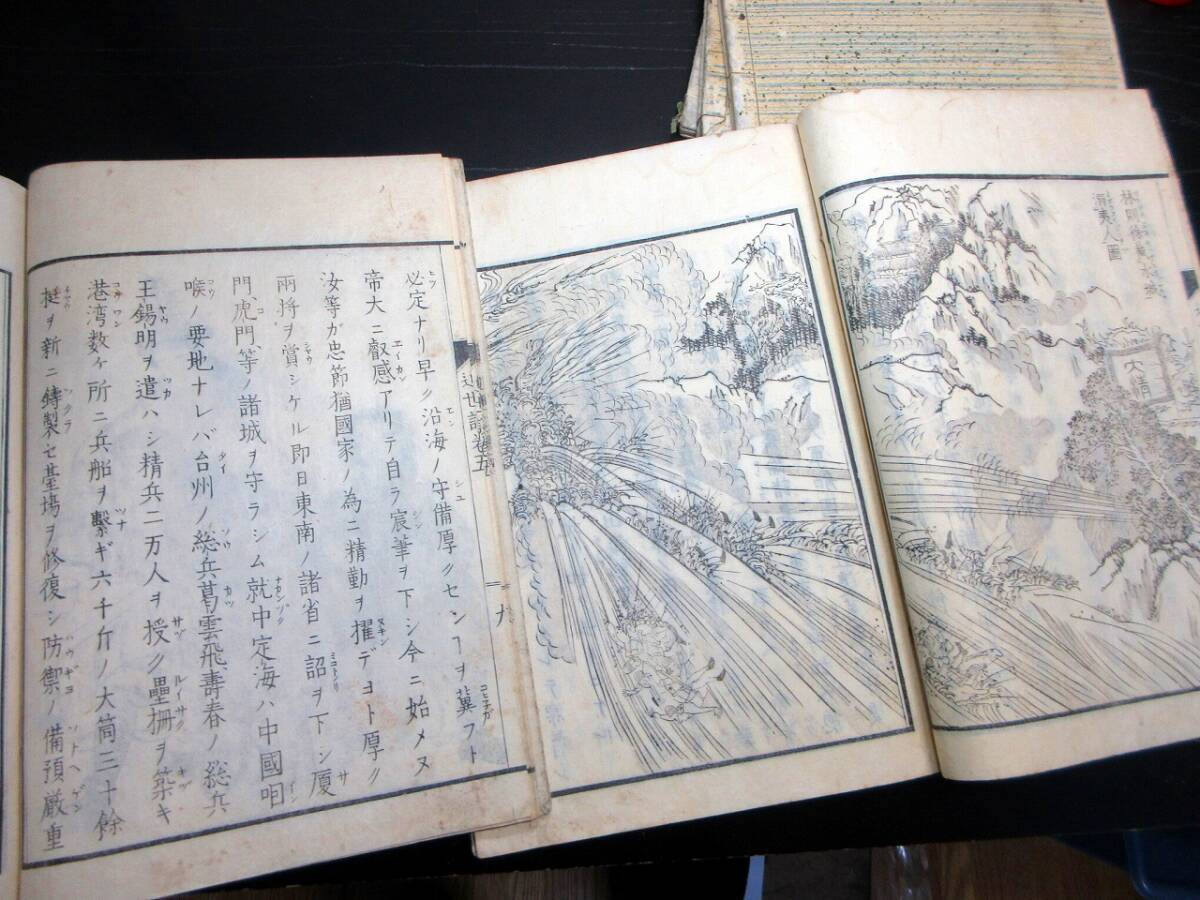 林則徐
溺夷人圖
大清
近世談巻五
九
必定ナリ早ク沿海ノ守備厚クセンヿヲ冀フト
帝大ニ叡感アリテ自ラ宸筆ヲ下シ今ニ始メヌ
汝等ガ忠節猶國家ノ為ニ精勤ヲ擢デヨト厚ク
兩将ヲ賞シケル即日東南ノ諸省ニ詔ヲ下シ厦
門、虎門、等ノ諸城ヲ守ラシム就中定海ハ中國咽
喉ノ要地ナレバ台州ノ総兵葛雲飛壽春ノ総兵
王錫明ヲ遣ハシ精兵二万人ヲ授ク壘柵ヲ築キ
港湾数ヶ所ニ兵船ヲ繫ギ六千斤ノ大筒三十餘
挺ヲ新ニ鋳製セ臺場ヲ修復シ防禦ノ備預厳重